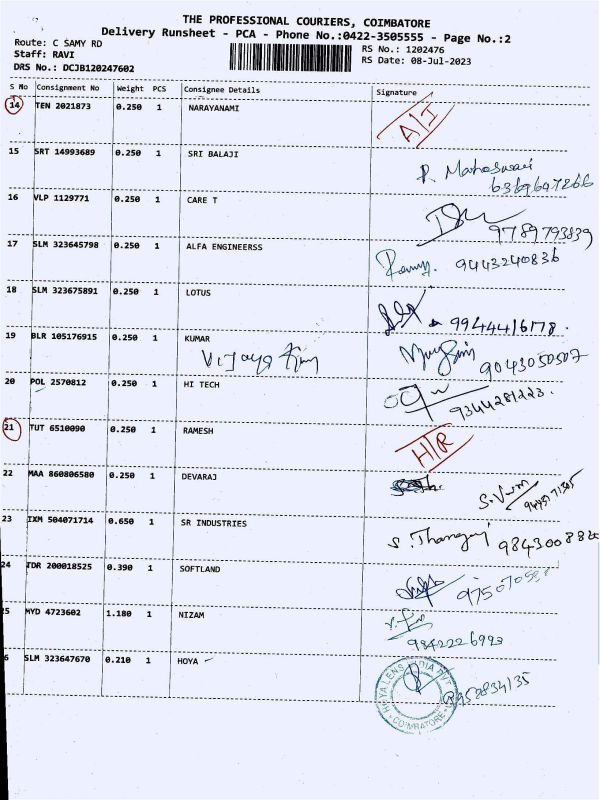 THE PROFESSIONAL COURIERS, COIMBATORE
Delivery Runsheet - PCA - Phone No.:0422-3505555 - Page No.:2
Route: C SAMY RD
Staff: RAVI
DRS No.: DCJB120247602
RS No.: 1202476
RS Date: 08-Jul-2023
S No Consignment No Weight PCS Consignee Details Signature
14 TEN 2021873 0.250 1 NARAYANAMI A/I
15 SRT 14993689 0.250 1 SRI BALAJI
P. Maheswari
6369647266
16 VLP 1129771 0.250 1 CARE T
9789793839
17 SLM 323645798 0.250 1 ALFA ENGINEERSS
9443240836
18 SLM 323675891 0.250 1 LOTUS
9944416778.
19 BLR 105176915 0.250 1 KUMAR
9043050507
20 POL 2570812 0.250 1 HI TECH
9344281223.
21 TUT 6510090 0.250 1 RAMESH H/R
22 MAA 860806580 0.250 1 DEVARAJ
23 IXM 504071714 0.650 1 SR INDUSTRIES
S. Thangaraj 9843008820
24 IDR 200018525 0.390 1 SOFTLAND
25 MYD 4723602 1.180 1 NIZAM
9842226993
6 SLM 323647670 0.210 1 HOYA
HOYA LENS INDIA PVT
COIMBATORE